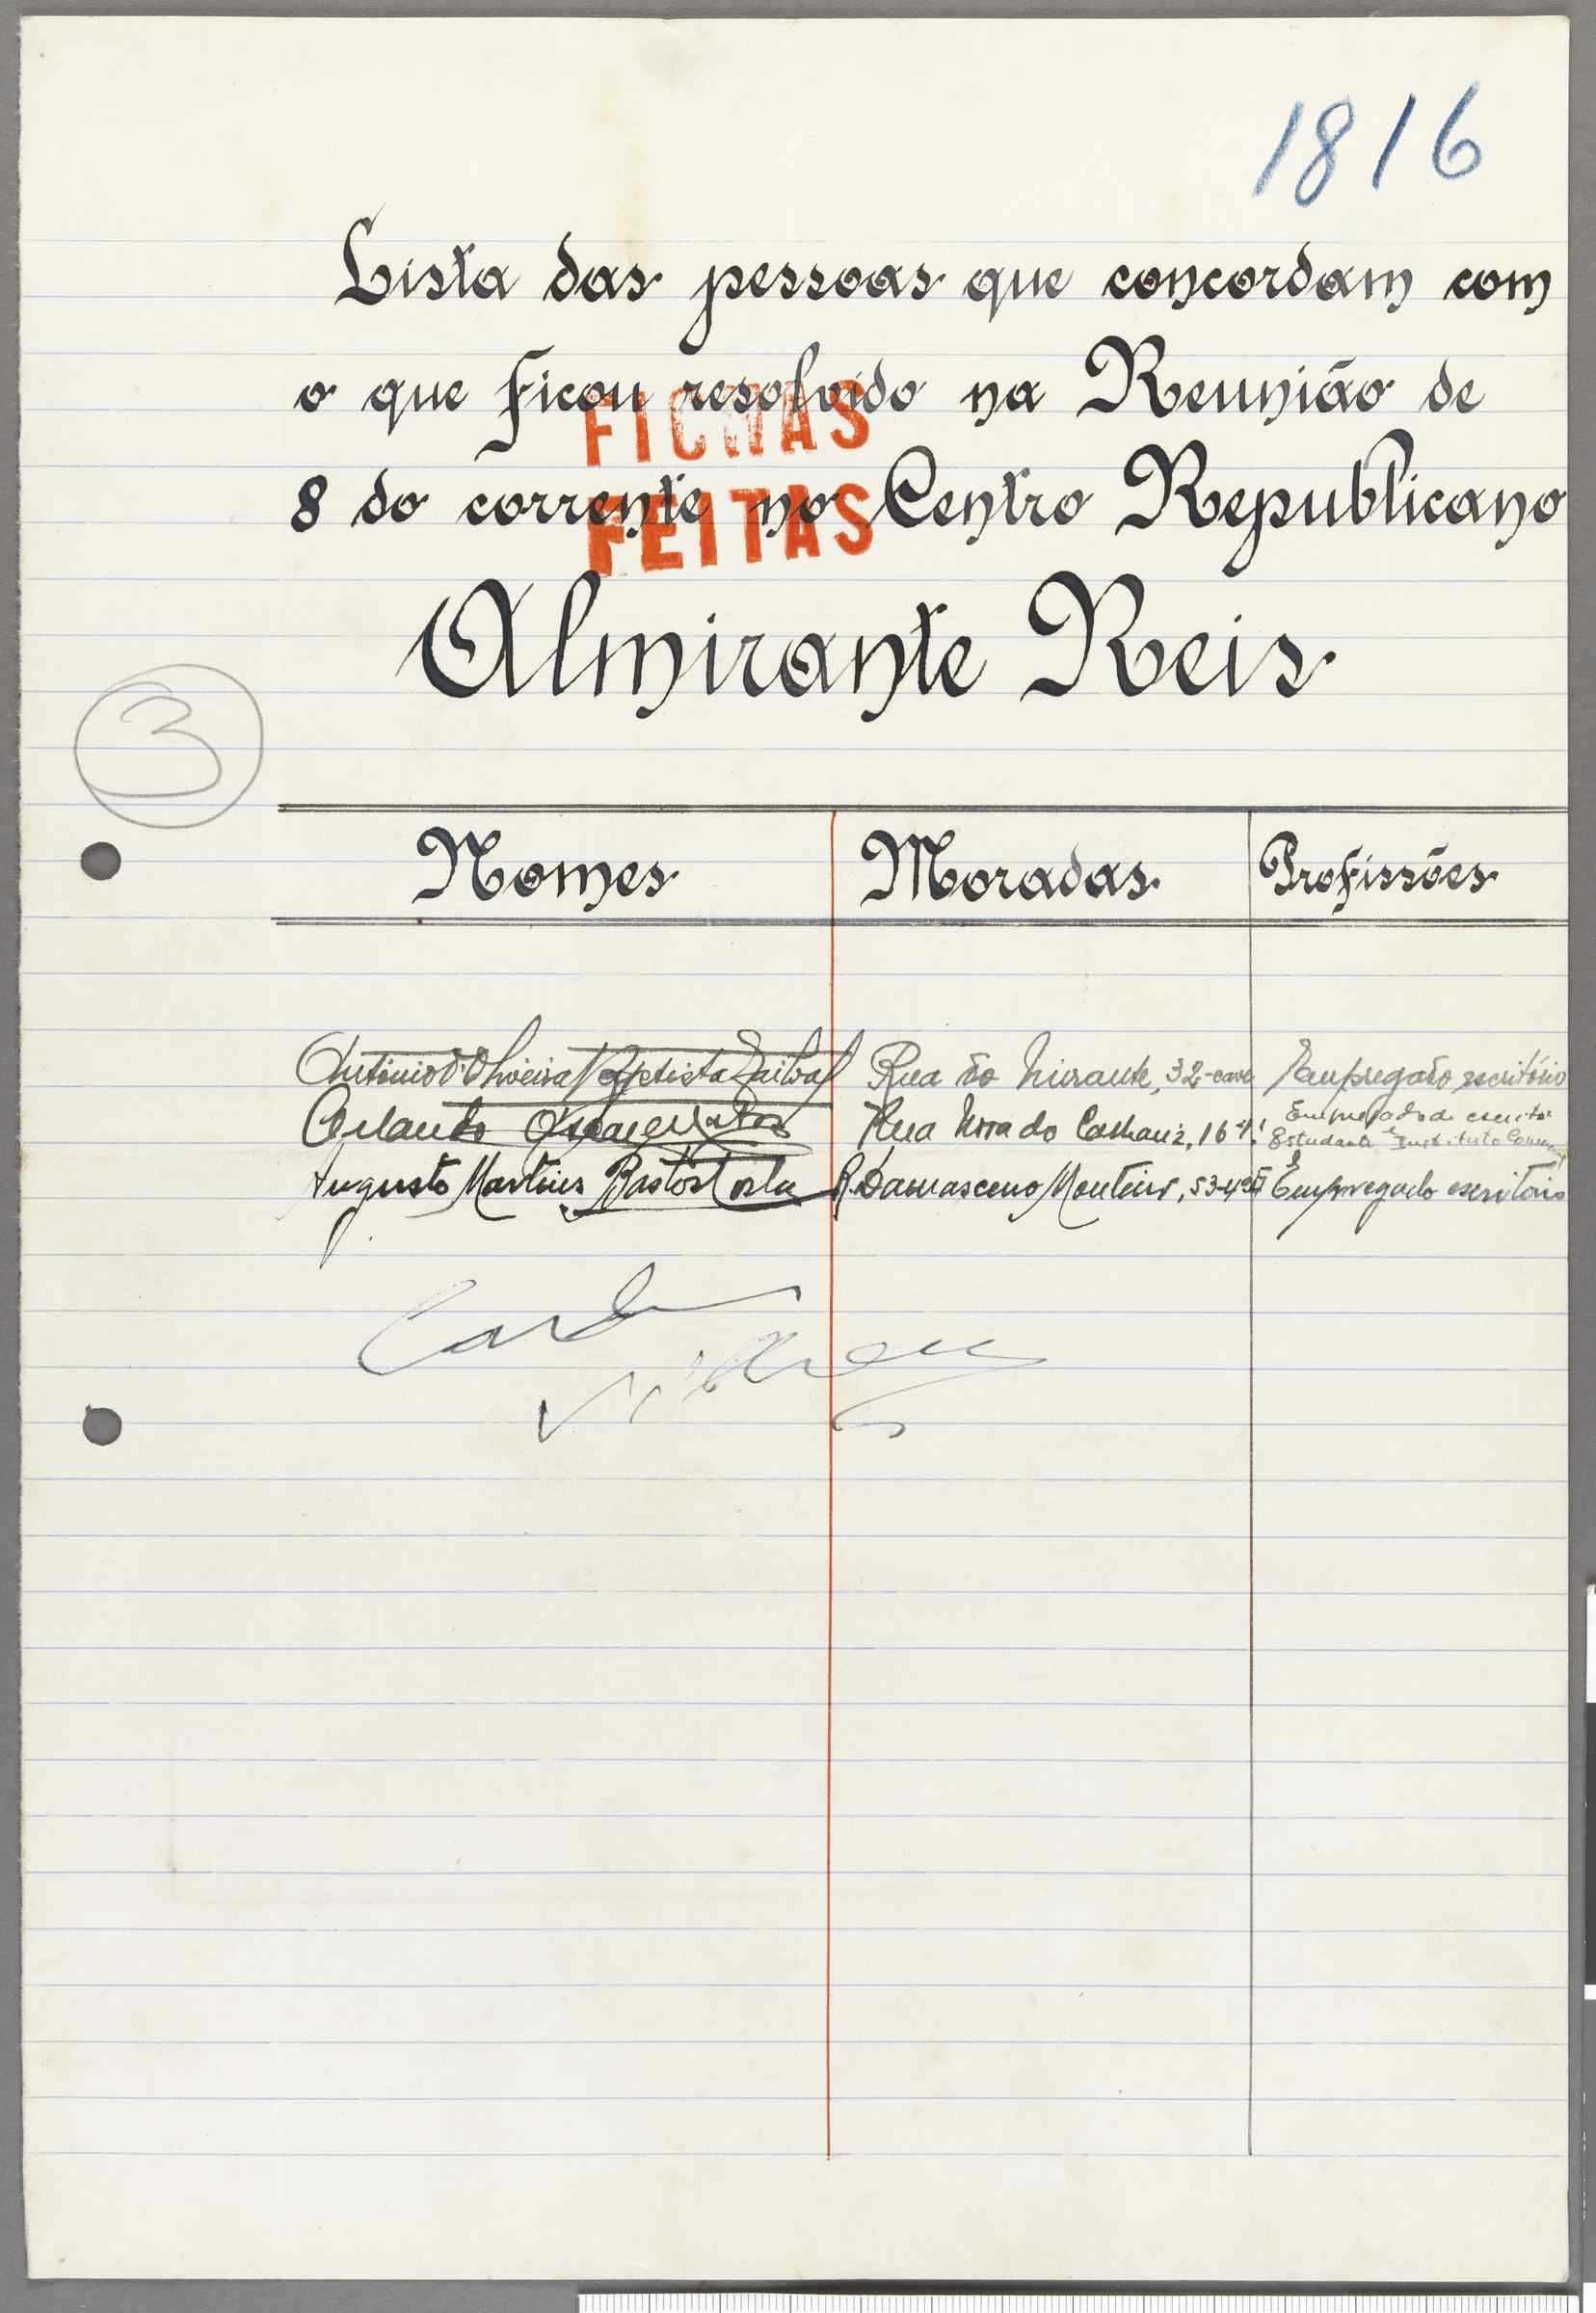 1816
Lista das pessoas que concordam com
o que ficou resolvido na Reunião de
FICHAS
8 do corrente no Centro Republicano
FEITAS
Almirante Reis
3
Nomes Moradas Profissões
António d'Oliveira Baptista Rua do Mirante, 32-cave Empregado escritório
Orlando Rua Nova do 16-1º Empregado de escritó.
Estudante Instituto
Augusto Martins Bastos Costa R. Damasceno Monteiro, 53-4º Empregado escritório